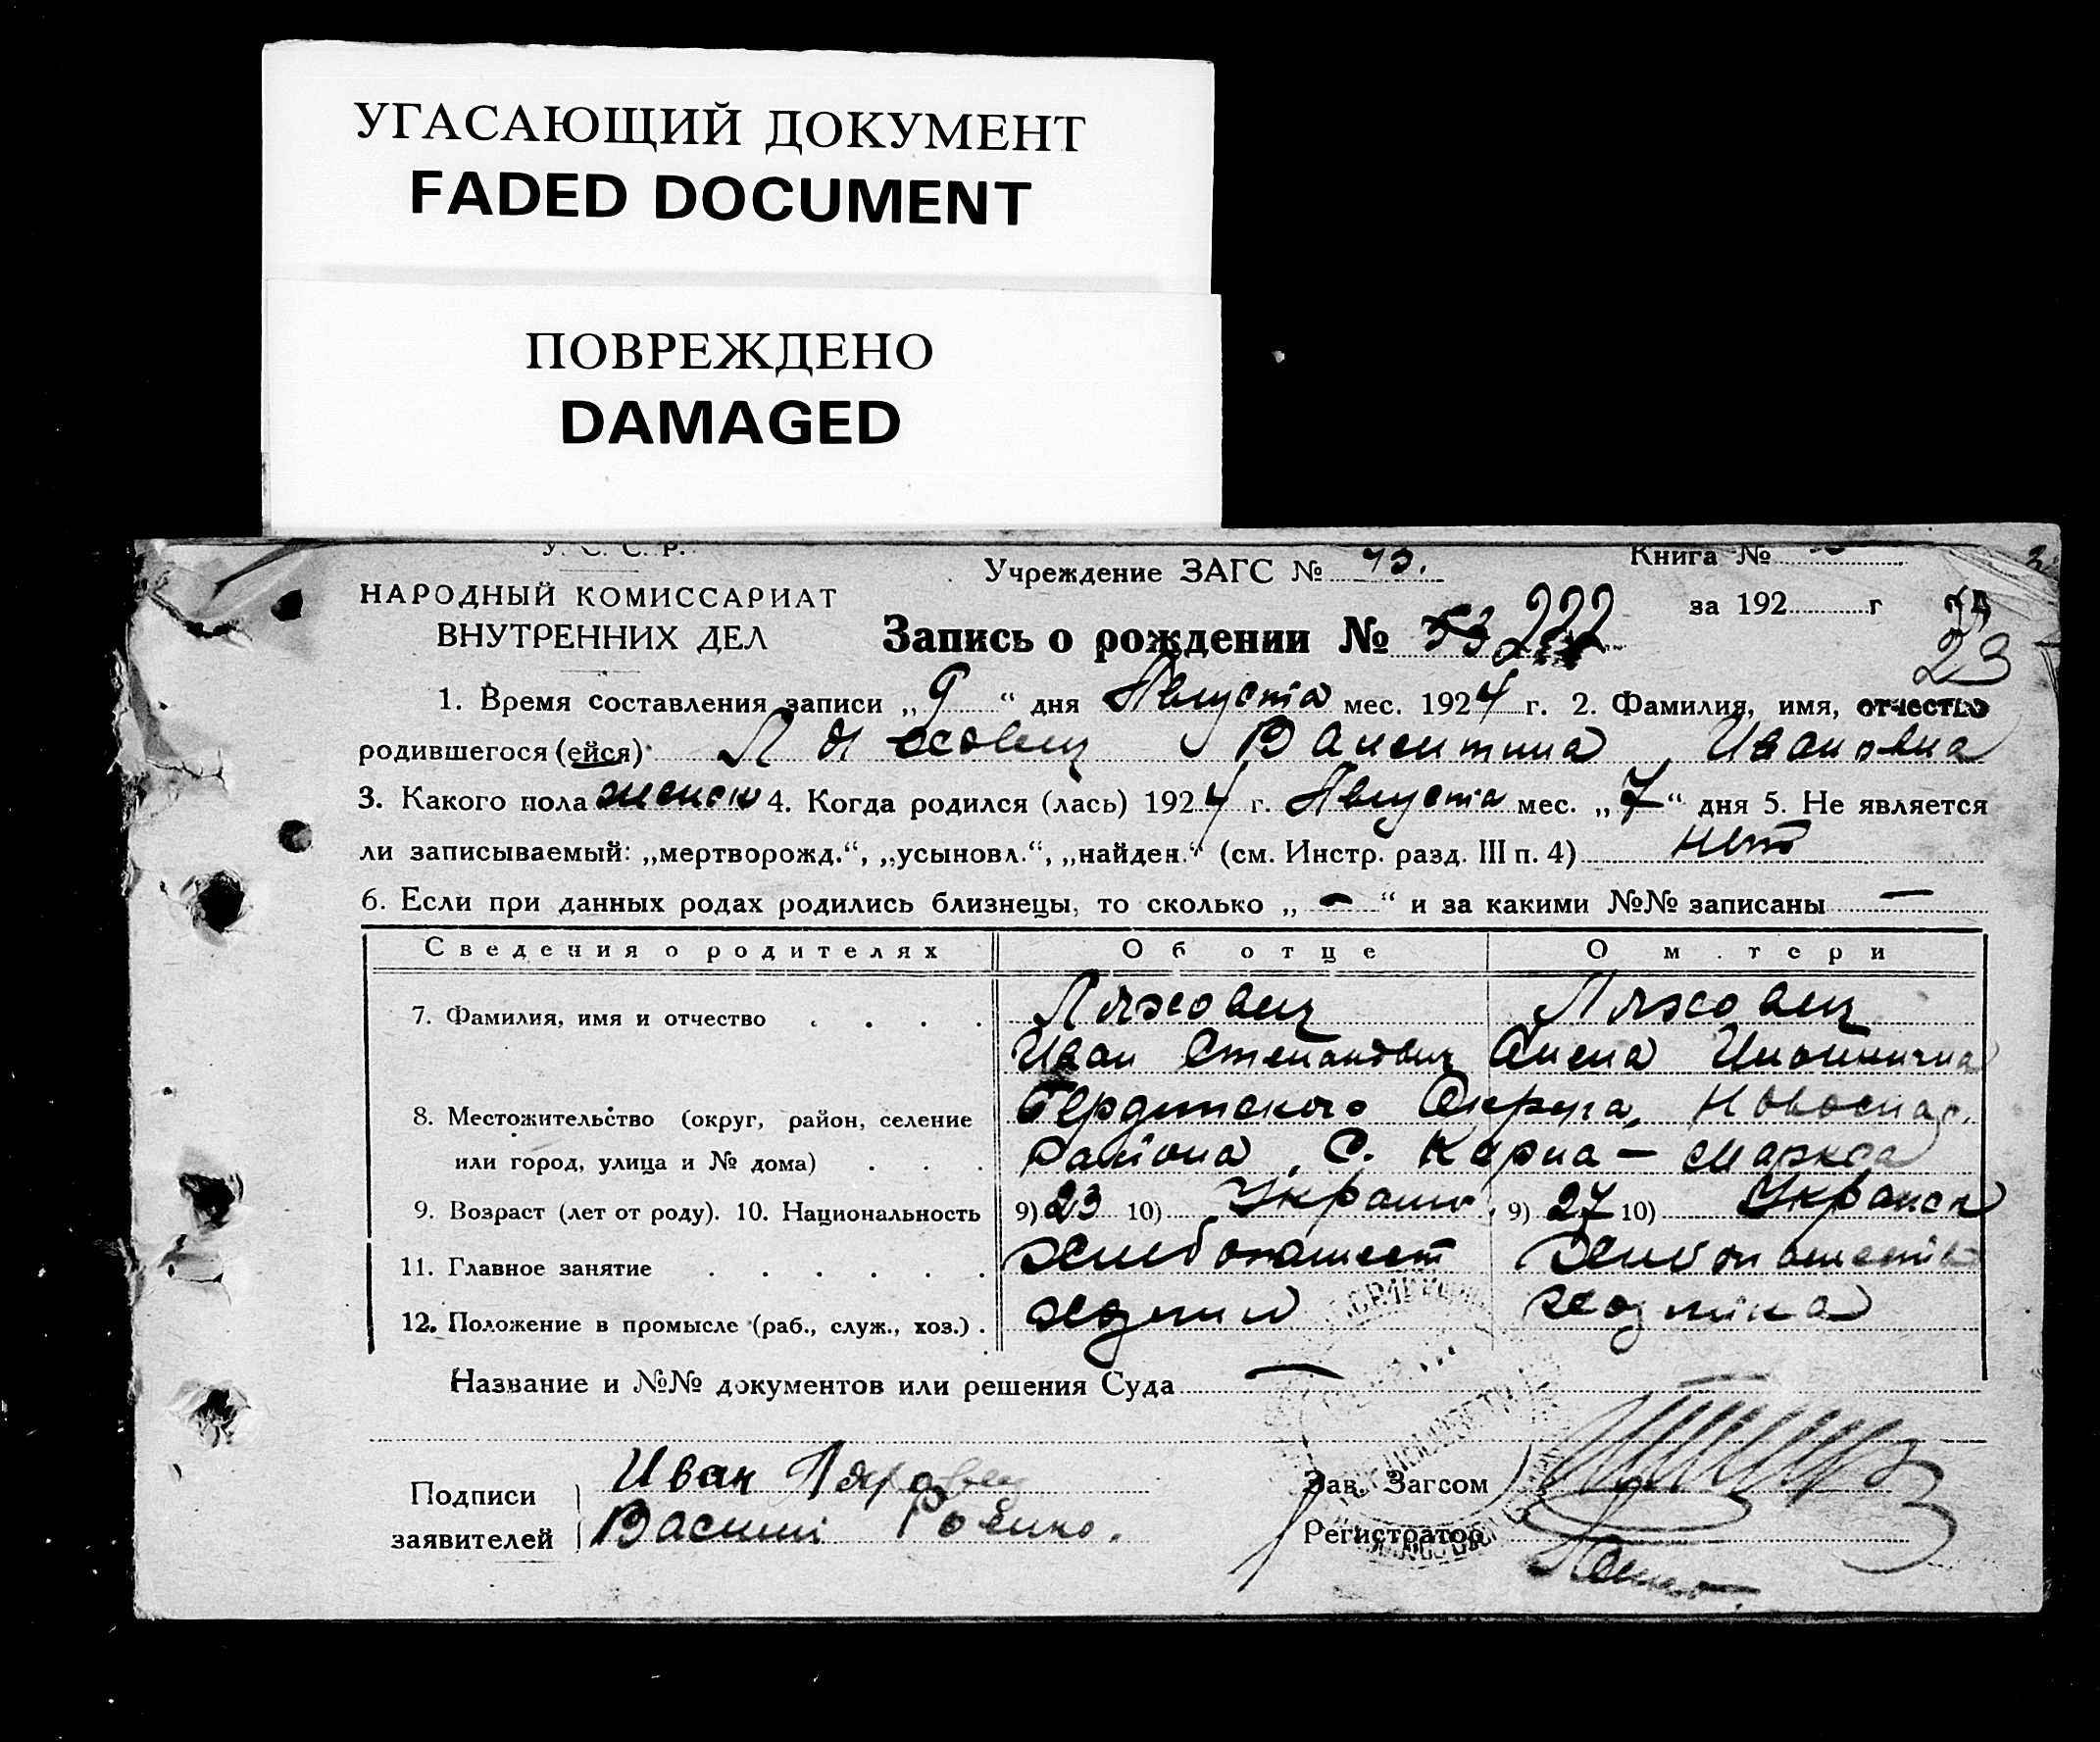 УГАСАЮЩИЙ ДОКУМЕНТ
FADED DOCUMENT
ПОВРЕЖДЕНО
DAMAGED
У. С. С. Р.
НАРОДНЫЙ КОМИССАРИАТ
ВНУТРЕННИХ ДЕЛ
Учреждение ЗАГС №
Книга №
за 192 г
23
Запись о рождении № 53 222
1. Время составления записи „ 9 “ дня Августа мес. 1924 г. 2. Фамилия, имя, отчество
родившегося (ейся) Ляховец Валентина Ивановна
3. Какого пола женск 4. Когда родился (лась) 1924 г. Августа мес. „ 7 “ дня 5. Не является
ли записываемый: „мертворожд.“, „усыновл.“, „найден.“ (см. Инстр. разд. III п. 4) нет
6. Если при данных родах родились близнецы, то сколько „ — “ и за какими №№ записаны —
Сведения о родителях Об отце О м тери
7. Фамилия, имя и отчество . . . . Ляховец Ляховец
Иван Степанович Елена
8. Местожительство (округ, район, селение Бердянского Округа, Новоспас.
или город, улица и № дома) . . . Района, С. Карла — Маркса
9. Возраст (лет от роду). 10. Национальность 9) 23 10) Украин. 9) 27 10) Украинк
11. Главное занятие . . . . . . хлебопашест хлебопашеств
12. Положение в промысле (раб., служ., хоз.) . хозяин
Название и №№ документов или решения Суда —
Подписи Иван Ляховец Зав. Загсом
заявителей Василий Регистратор